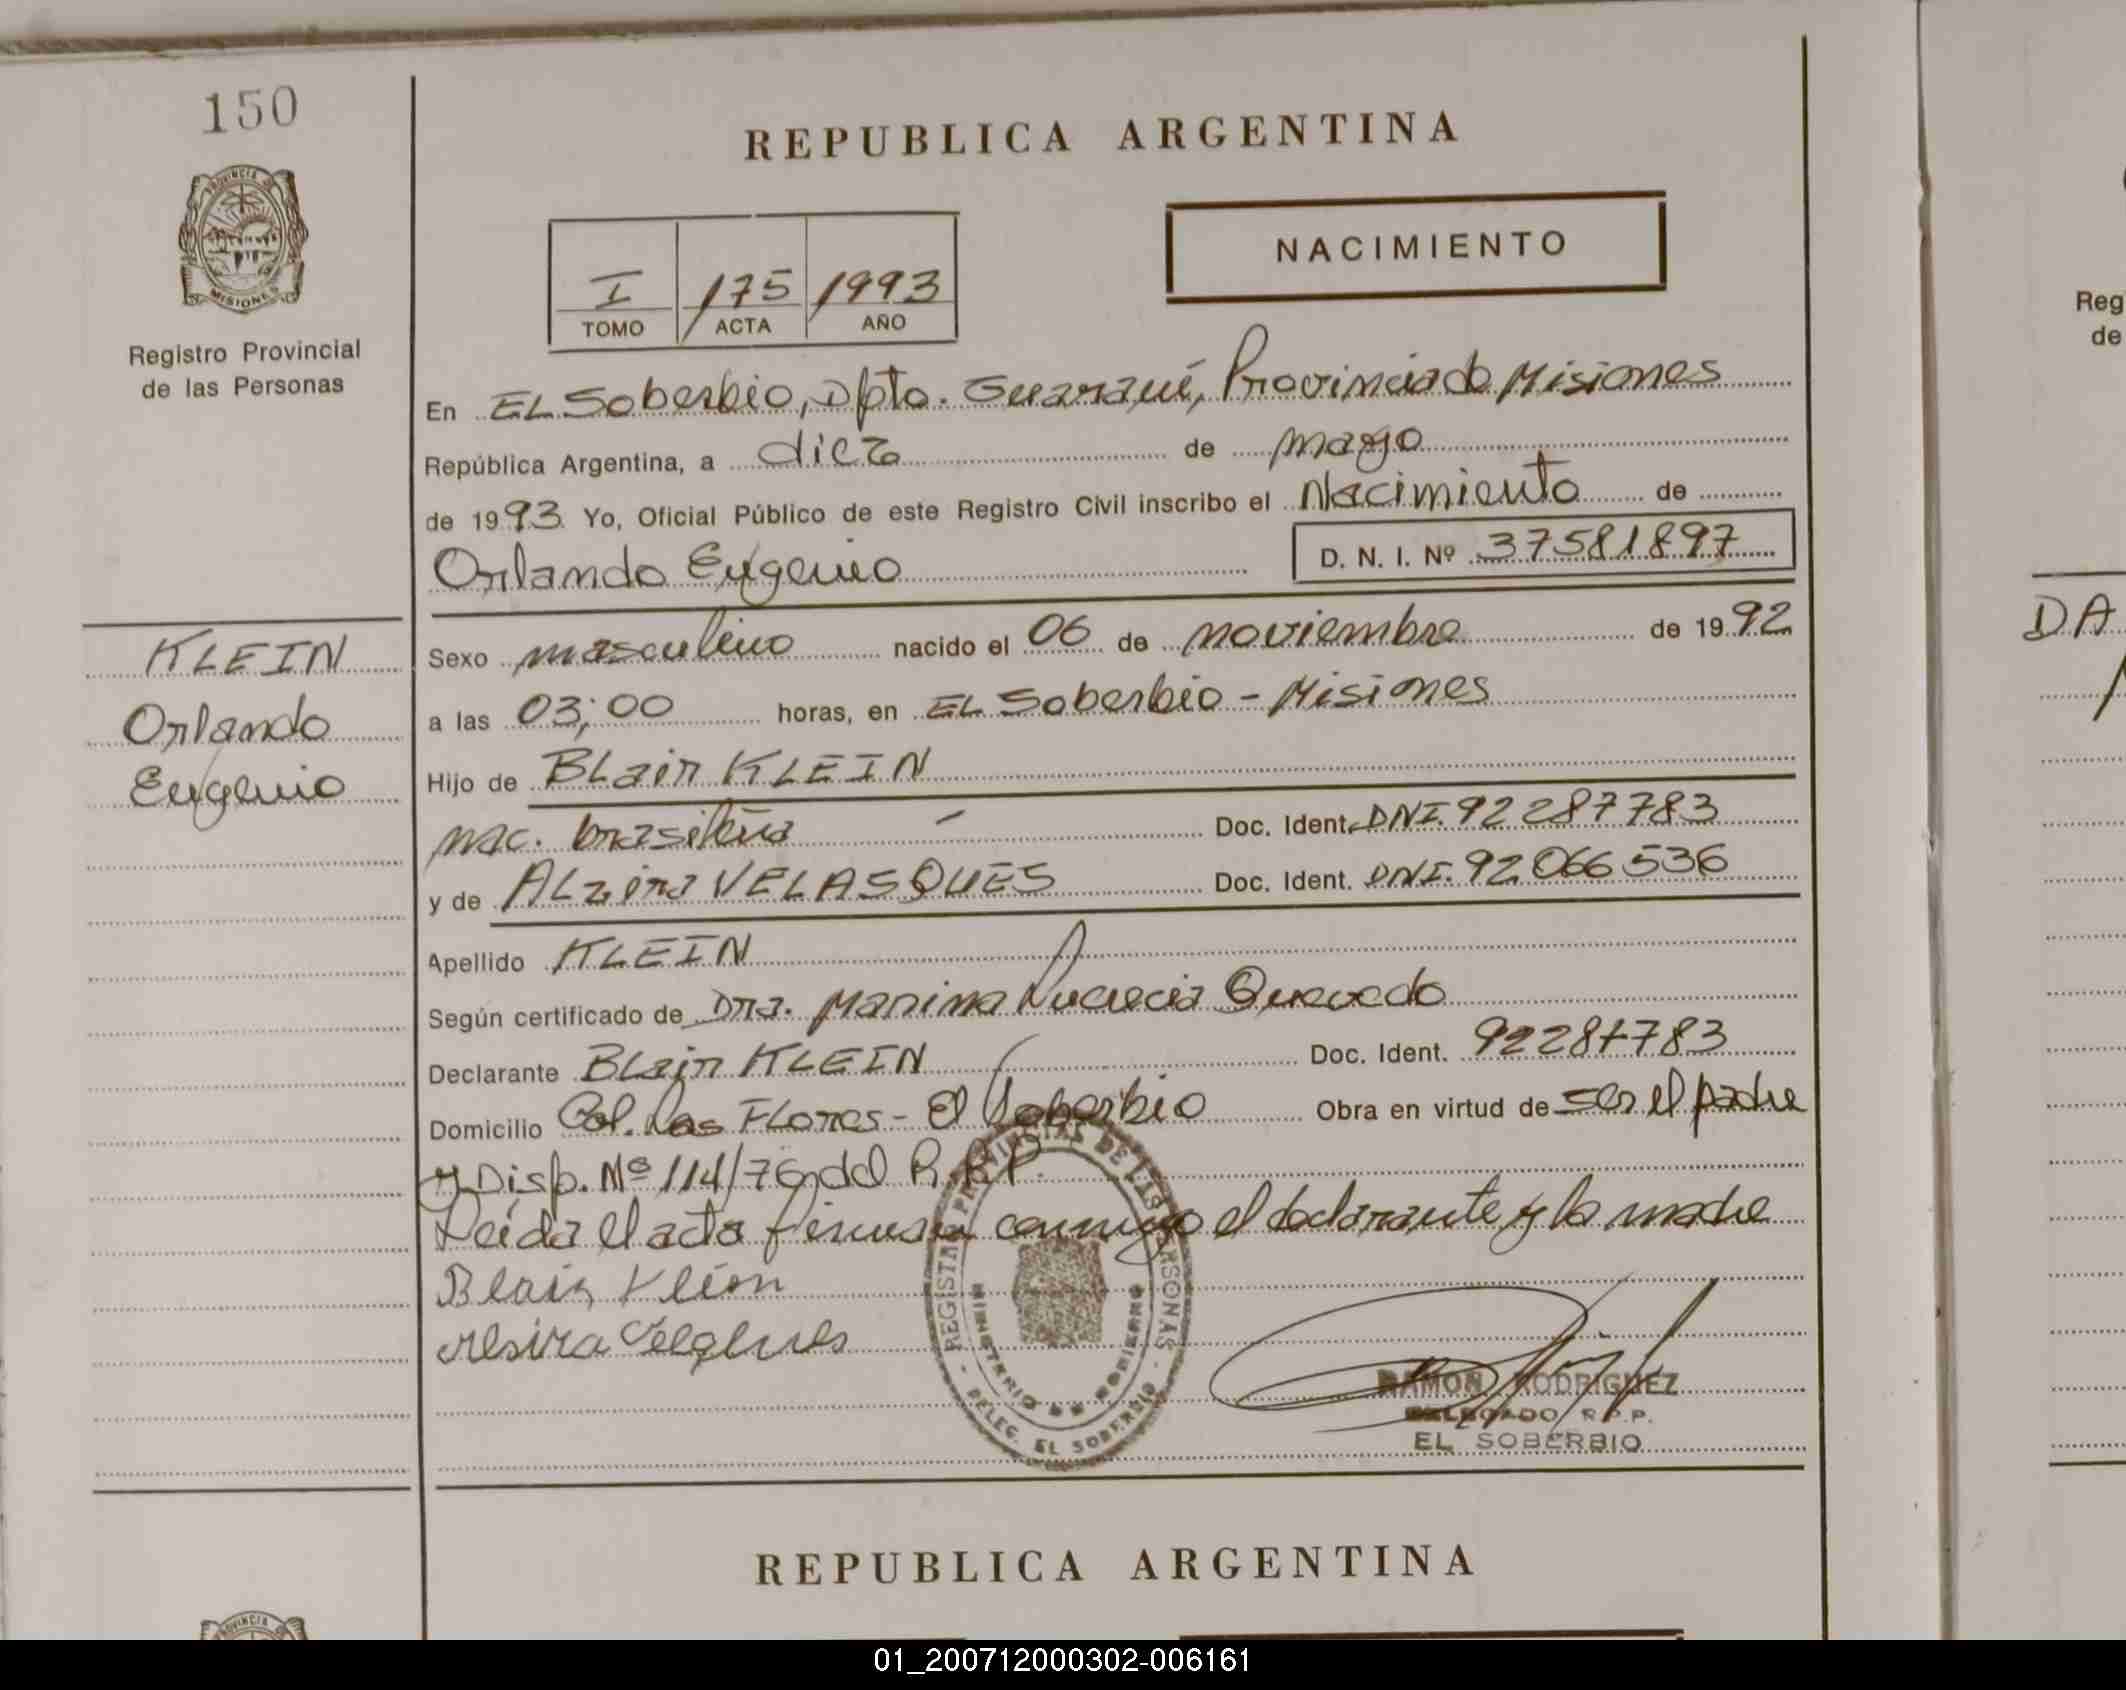 150
PROVINCIA DE
MISIONES
Registro Provincial
de las Personas
KLEIN
Orlando
Eugenio
REPUBLICA ARGENTINA
I 175 1993
TOMO ACTA AÑO
NACIMIENTO
En EL Soberbio, Dpto. Guaraní, Provincia de Misiones
República Argentina, a diez de mayo
de 1993 Yo, Oficial Público de este Registro Civil inscribo el Nacimiento de
Orlando Eugenio D. N. I. Nº 37581897
Sexo masculino nacido el 06 de noviembre de 1992
a las 03;00 horas, en EL Soberbio - Misiones
Hijo de BLair KLEIN
nac. brasileña - Doc. Ident. DNI. 92287783
y de ALzira VELASQUES Doc. Ident. DNI. 92.066536
Apellido KLEIN
Según certificado de Dra. Marina Lucrecia Quevedo
Declarante BLair KLEIN Doc. Ident. 92287783
Domicilio Col. Las FLores - El Soberbio Obra en virtud de ser el padre
y Disp. Nº 114/76 del R.P.P.
Leída el acta firman conmigo el declarante y la madre
Blair Klein
REGISTRO PROVINCIAL DE LAS PERSONAS
MINISTERIO DE GOBIERNO
DELEG. EL SOBERBIO
RAMON RODRIGUEZ
DELEGADO R.P.P.
EL SOBERBIO
REPUBLICA ARGENTINA
PROVINCIA
Reg
de
DA
01_200712000302-006161